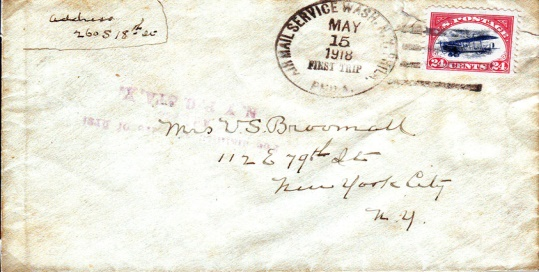 Address
260 S 18th St
AIR MAIL SERVICE WASH. N.Y. PHILA.
MAY
15
1918
FIRST TRIP
PHILA.
U.S. POSTAGE
24 CENTS 24
N. Y. P. O. STA.
Mrs V. S. Broomall
112 E 79th St
New York City
N.Y.